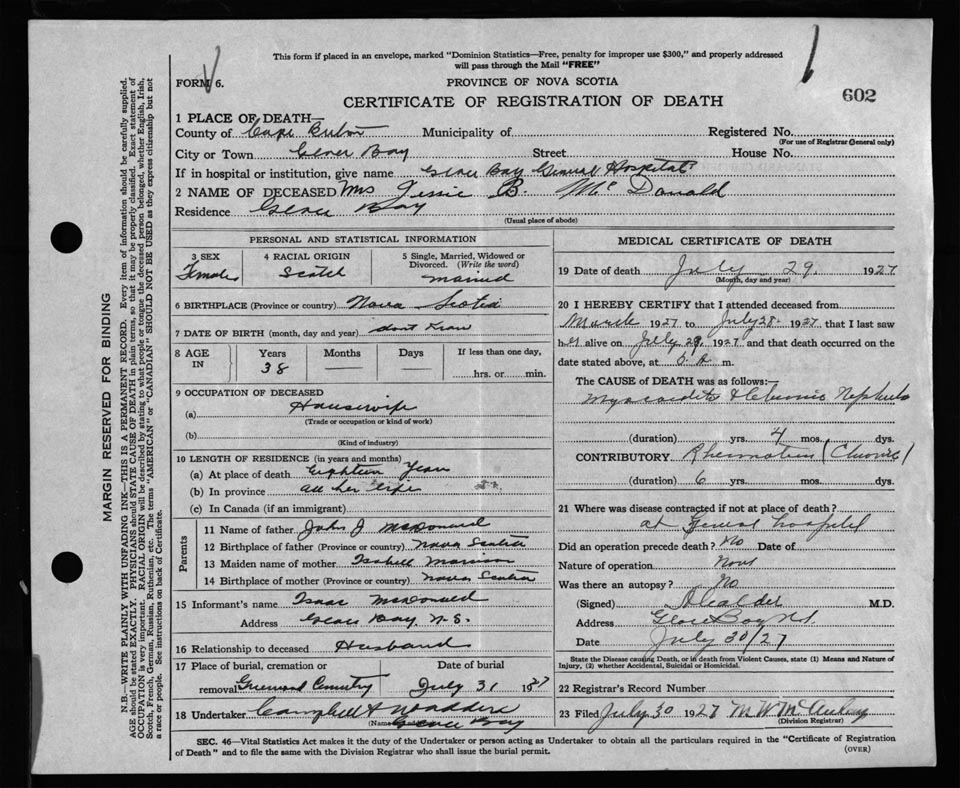 This form if placed in an envelope, marked "Dominion Statistics—Free, penalty for improper use $300," and properly addressed
will pass through the Mail "FREE"
FORM 6.
PROVINCE OF NOVA SCOTIA
CERTIFICATE OF REGISTRATION OF DEATH
602
1 PLACE OF DEATH—
County of Cape Breton Municipality of Registered No.
(For use of Registrar General only)
City or Town Glace Bay Street House No.
If in hospital or institution, give name Glace Bay General Hospital
2 NAME OF DECEASED Mrs Jessie B. McDonald
Residence Glace Bay
(Usual place of abode)
PERSONAL AND STATISTICAL INFORMATION
3 SEX 4 RACIAL ORIGIN 5 Single, Married, Widowed or Divorced. (Write the word)
Female Scotch married
6 BIRTHPLACE (Province or country) Nova Scotia
7 DATE OF BIRTH (month, day and year) dont Know
8 AGE IN Years Months Days If less than one day,
38 hrs. or min.
9 OCCUPATION OF DECEASED
(a) Housewife
(Trade or occupation or kind of work)
(b)
(Kind of industry)
10 LENGTH OF RESIDENCE (in years and months)
(a) At place of death Eighteen Years
(b) In province all her life
(c) In Canada (if an immigrant)
Parents
11 Name of father John J McDonald
12 Birthplace of father (Province or country) Nova Scotia
13 Maiden name of mother Isabell Morrison
14 Birthplace of mother (Province or country) Nova Scotia
15 Informant's name Isaac McDonald
Address Glace Bay N.S.
16 Relationship to deceased Husband
17 Place of burial, cremation or Date of burial
removal Greenwood Cemetry July 31 1927
18 Undertaker Campbell & Madden
(Name Glace Bay
MEDICAL CERTIFICATE OF DEATH
19 Date of death July 29. 1927
(Month, day and year)
20 I HEREBY CERTIFY that I attended deceased from
March 1927 to July 28 1927 that I last saw
her alive on July 29 1927 and that death occurred on the
date stated above, at m.
The CAUSE of DEATH was as follows:—
Myocarditis & Chronic Nephritis
(duration) yrs. 4 mos. dys.
CONTRIBUTORY Rheumatism (Chronic)
(duration) 6 yrs. mos. dys.
21 Where was disease contracted if not at place of death?
at General hospital
Did an operation precede death? No Date of
Nature of operation None
Was there an autopsy? No
(Signed) M.D.
Address Glace Bay N.S.
Date July 30/27
State the Disease causing Death, or in death from Violent Causes, state (1) Means and Nature of
Injury, (2) whether Accidental, Suicidal or Homicidal.
22 Registrar's Record Number
23 Filed July 30 1927
(Division Registrar)
SEC. 46—Vital Statistics Act makes it the duty of the Undertaker or person acting as Undertaker to obtain all the particulars required in the "Certificate of Registration
of Death" and to file the same with the Division Registrar who shall issue the burial permit.
(OVER)
MARGIN RESERVED FOR BINDING
N.B.—WRITE PLAINLY WITH UNFADING INK—THIS IS A PERMANENT RECORD. Every item of information should be carefully supplied.
AGE should be stated EXACTLY. PHYSICIANS should STATE CAUSE OF DEATH in plain terms, so that it may be properly classified. Exact statement of
OCCUPATION is very important. RACIAL ORIGIN will be described by stating to what people or tongue the deceased person belonged, whether English, Irish,
Scotch, French, German, Russian, Ruthenian, etc. The terms "AMERICAN" or "CANADIAN" SHOULD NOT BE USED as they express citizenship but not
a race or people. See instructions on back of Certificate.